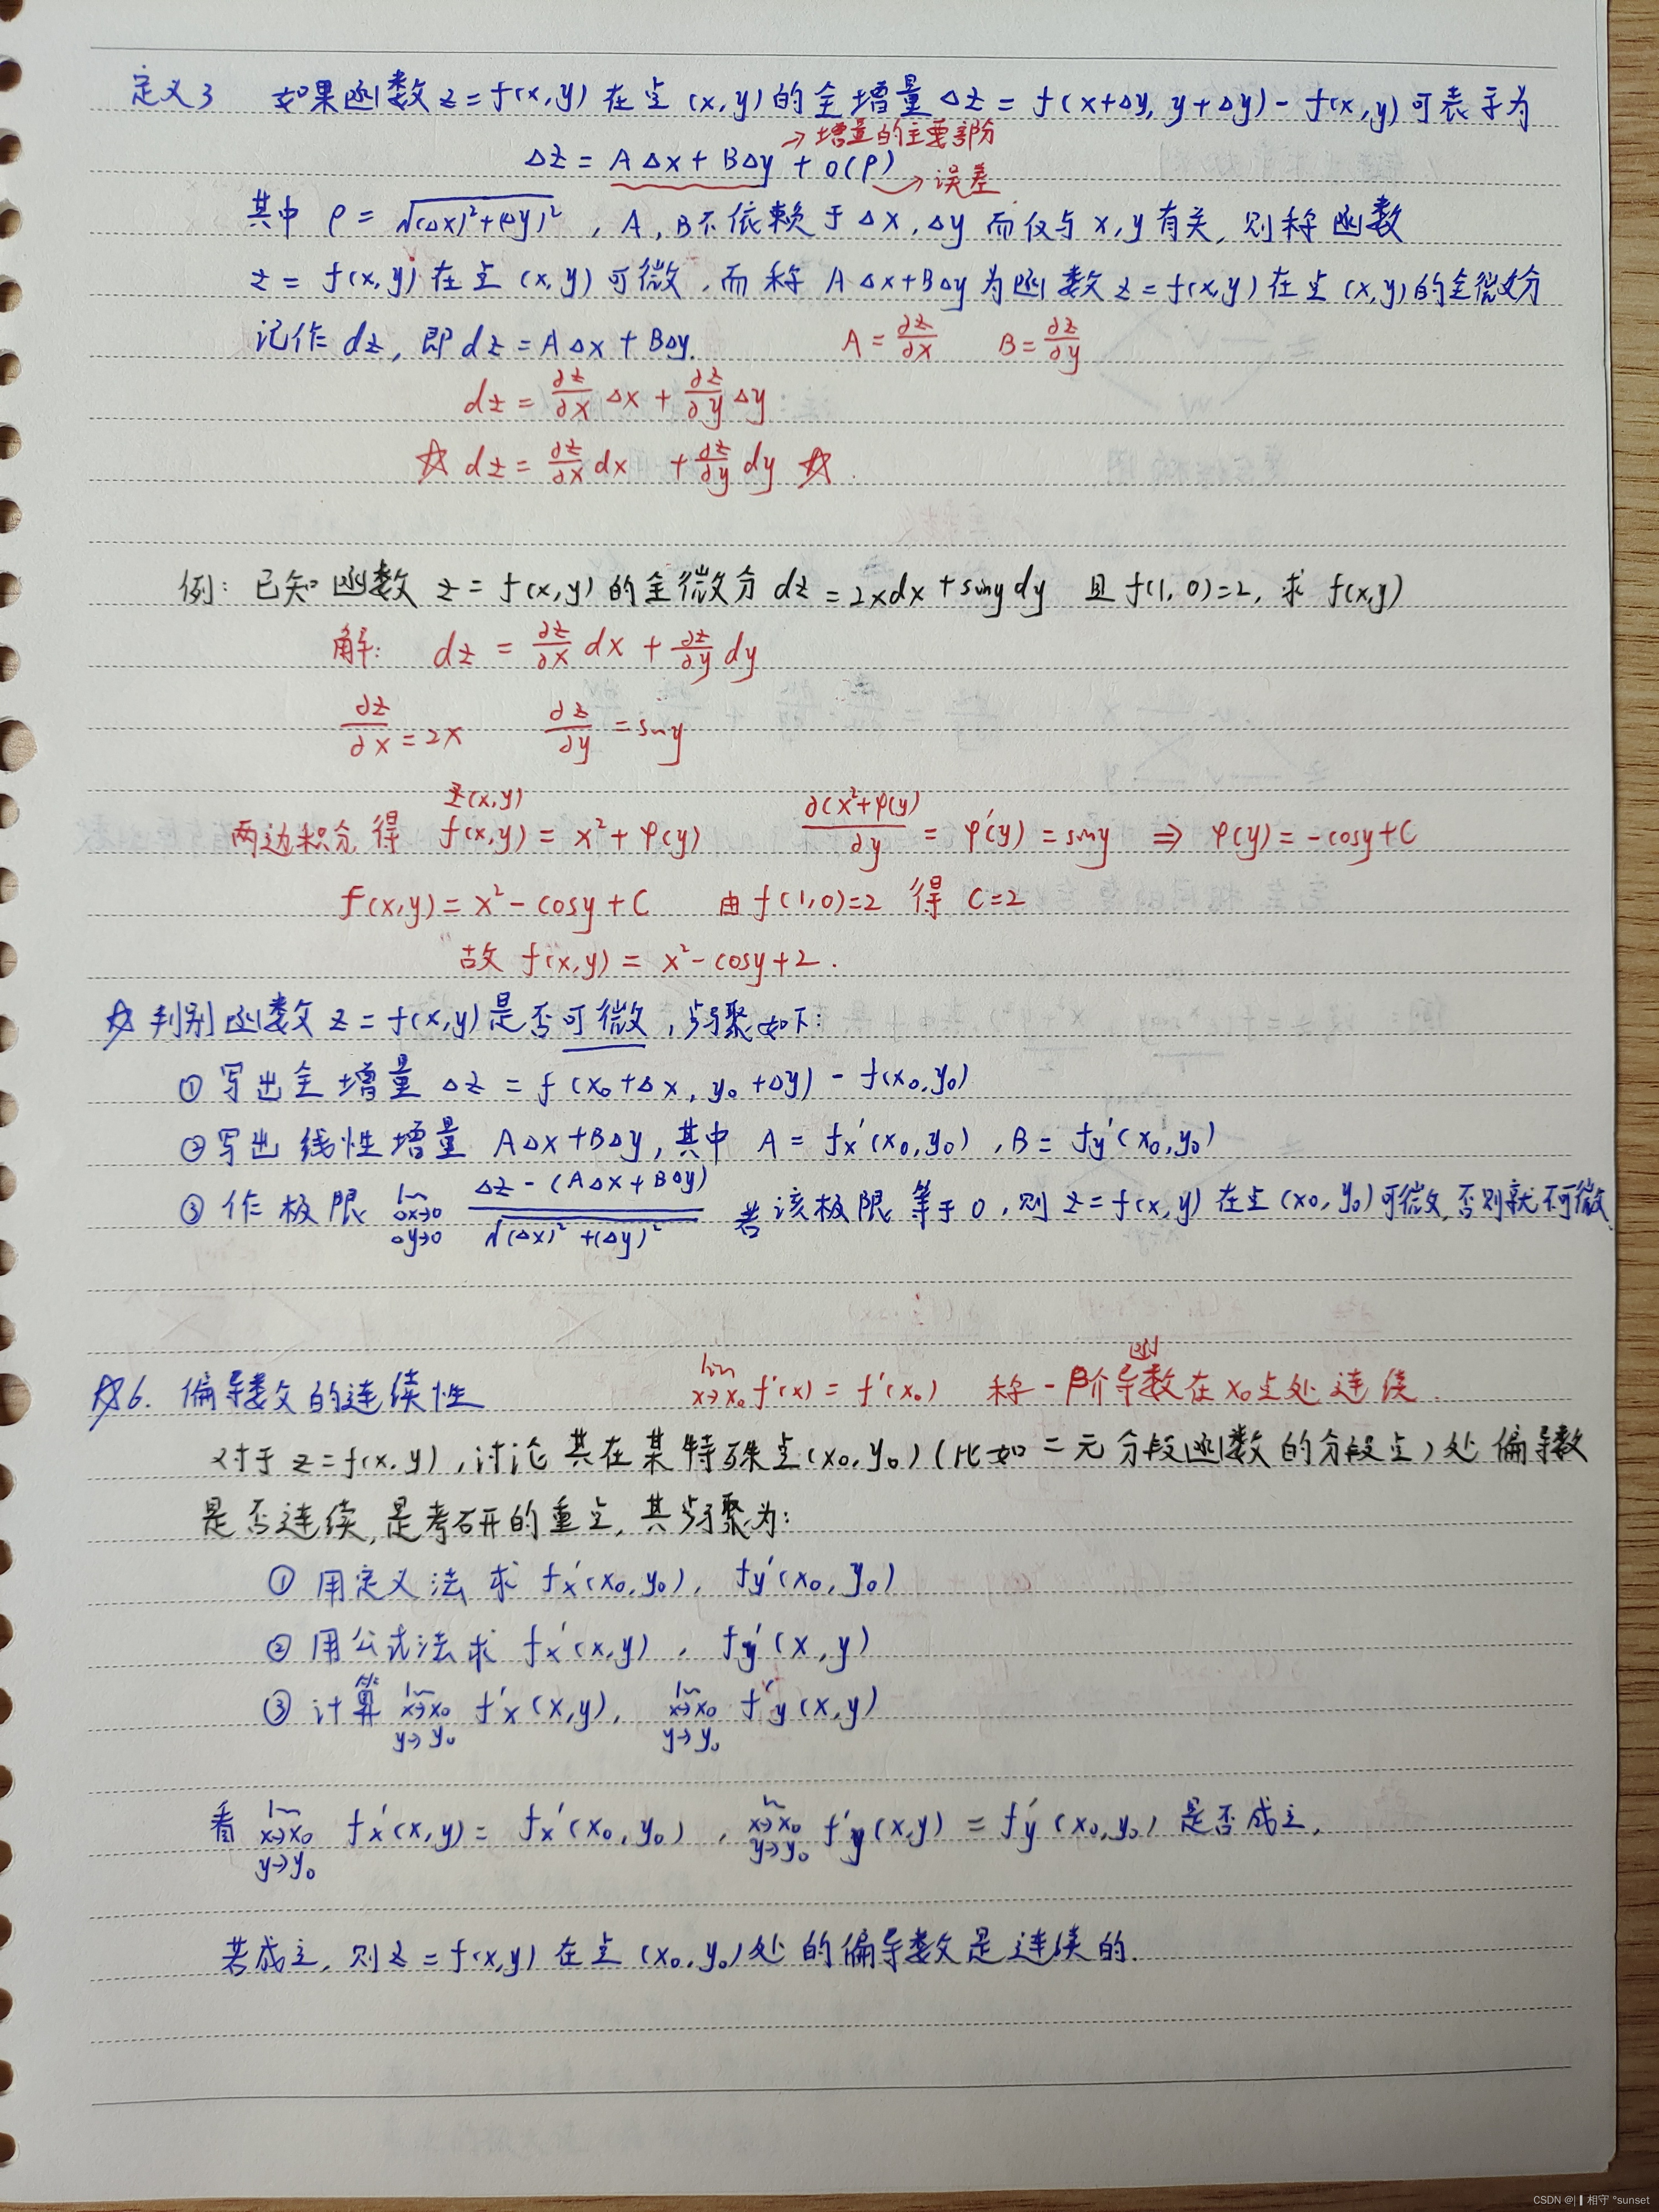 定义3 如果函数 z = f(x,y) 在点 (x,y) 的全增量 Δz = f(x+Δy, y+Δy) - f(x,y) 可表示为
→ 增量的主要部分
Δz = AΔx + BΔy + o(ρ) → 误差
其中 ρ = √((Δx)²+(Δy)²) , A, B不依赖于 Δx, Δy 而仅与 x,y 有关, 则称函数
z = f(x,y) 在点 (x,y) 可微, 而称 AΔx+BΔy 为函数 z = f(x,y) 在点 (x,y) 的全微分
记作 dz, 即 dz = AΔx + BΔy. A = ∂z/∂x B = ∂z/∂y
dz = ∂z/∂x Δx + ∂z/∂y Δy
☆ dz = ∂z/∂x dx + ∂z/∂y dy ☆
例: 已知函数 z = f(x,y) 的全微分 dz = 2xdx + siny dy 且 f(1,0)=2, 求 f(x,y)
解: dz = ∂z/∂x dx + ∂z/∂y dy
∂z/∂x = 2x ∂z/∂y = siny
z(x,y)
两边积分得 f(x,y) = x² + φ(y) ∂(x²+φ(y))/∂y = φ'(y) = siny ⇒ φ(y) = -cosy+C
f(x,y) = x² - cosy + C 由 f(1,0)=2 得 C=2
故 f(x,y) = x² - cosy + 2.
☆ 判别函数 z = f(x,y) 是否可微, 步骤如下:
① 写出全增量 Δz = f(x₀+Δx, y₀+Δy) - f(x₀,y₀)
② 写出线性增量 AΔx+BΔy, 其中 A = fx'(x₀,y₀), B = fy'(x₀,y₀)
③ 作极限 lim Δx→0 Δy→0 (Δz - (AΔx+BΔy))/√((Δx)²+(Δy)²) 若该极限等于0, 则 z = f(x,y) 在点 (x₀,y₀) 可微, 否则就不可微
☆6. 偏导数的连续性 lim x→x₀ f'(x) = f'(x₀) 称一阶导函数在x₀点处连续.
对于 z = f(x,y), 讨论其在某特殊点(x₀,y₀) (比如二元分段函数的分段点) 处偏导数
是否连续, 是考研的重点, 其步骤为:
① 用定义法求 fx'(x₀,y₀), fy'(x₀,y₀)
② 用公式法求 fx'(x,y), fy'(x,y)
③ 计算 lim x→x₀ y→y₀ f'x(x,y), lim x→x₀ y→y₀ f'y(x,y)
看 lim x→x₀ y→y₀ fx'(x,y) = fx'(x₀,y₀), lim x→x₀ y→y₀ f'y(x,y) = fy'(x₀,y₀) 是否成立,
若成立, 则 z = f(x,y) 在点 (x₀,y₀) 处的偏导数是连续的.
CSDN @|▎相守 °sunset